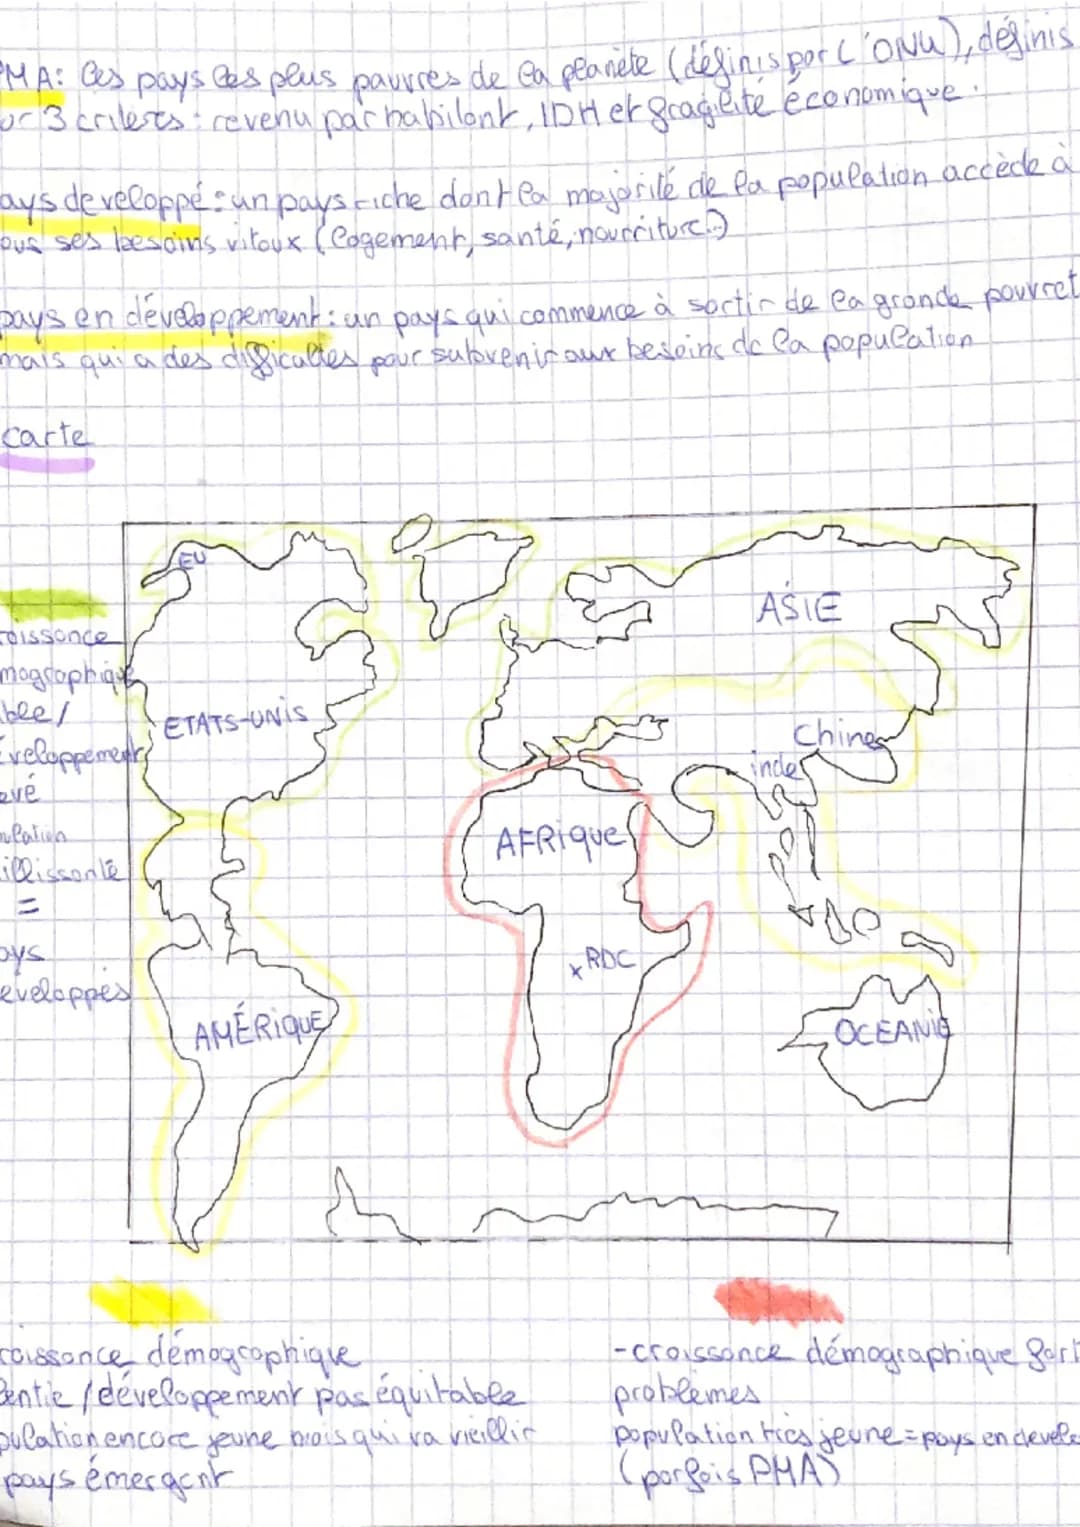 PMA: les pays les plus pauvres de la planète (définis par l'ONU), définis
or 3 critères : revenu par habitant, IDH et fragilité économique.
ays developpé : un pays riche dont la majorité de la population accède à
ous ses besoins vitaux (logement, santé, nourriture..)
pays en développement : un pays qui commence à sortir de la grande pauvret
mais qui a des difficultés pour subvenir aux besoins de la population
carte
EU
ASIE
roissance
mographique
ible /
ETATS-UNIS
éveloppement
Chine
inde
evé
pulation
AFRIQUE
illissante
=
ays
RDC
eveloppés
AMÉRIQUE
OCEANIE
roissance démographique
lentie / développement pas équitable
pulation encore jeune mais qui va vieillir
pays émergent
-croissance démographique fort
problèmes
population très jeune = pays en develo
(parfois PMA)